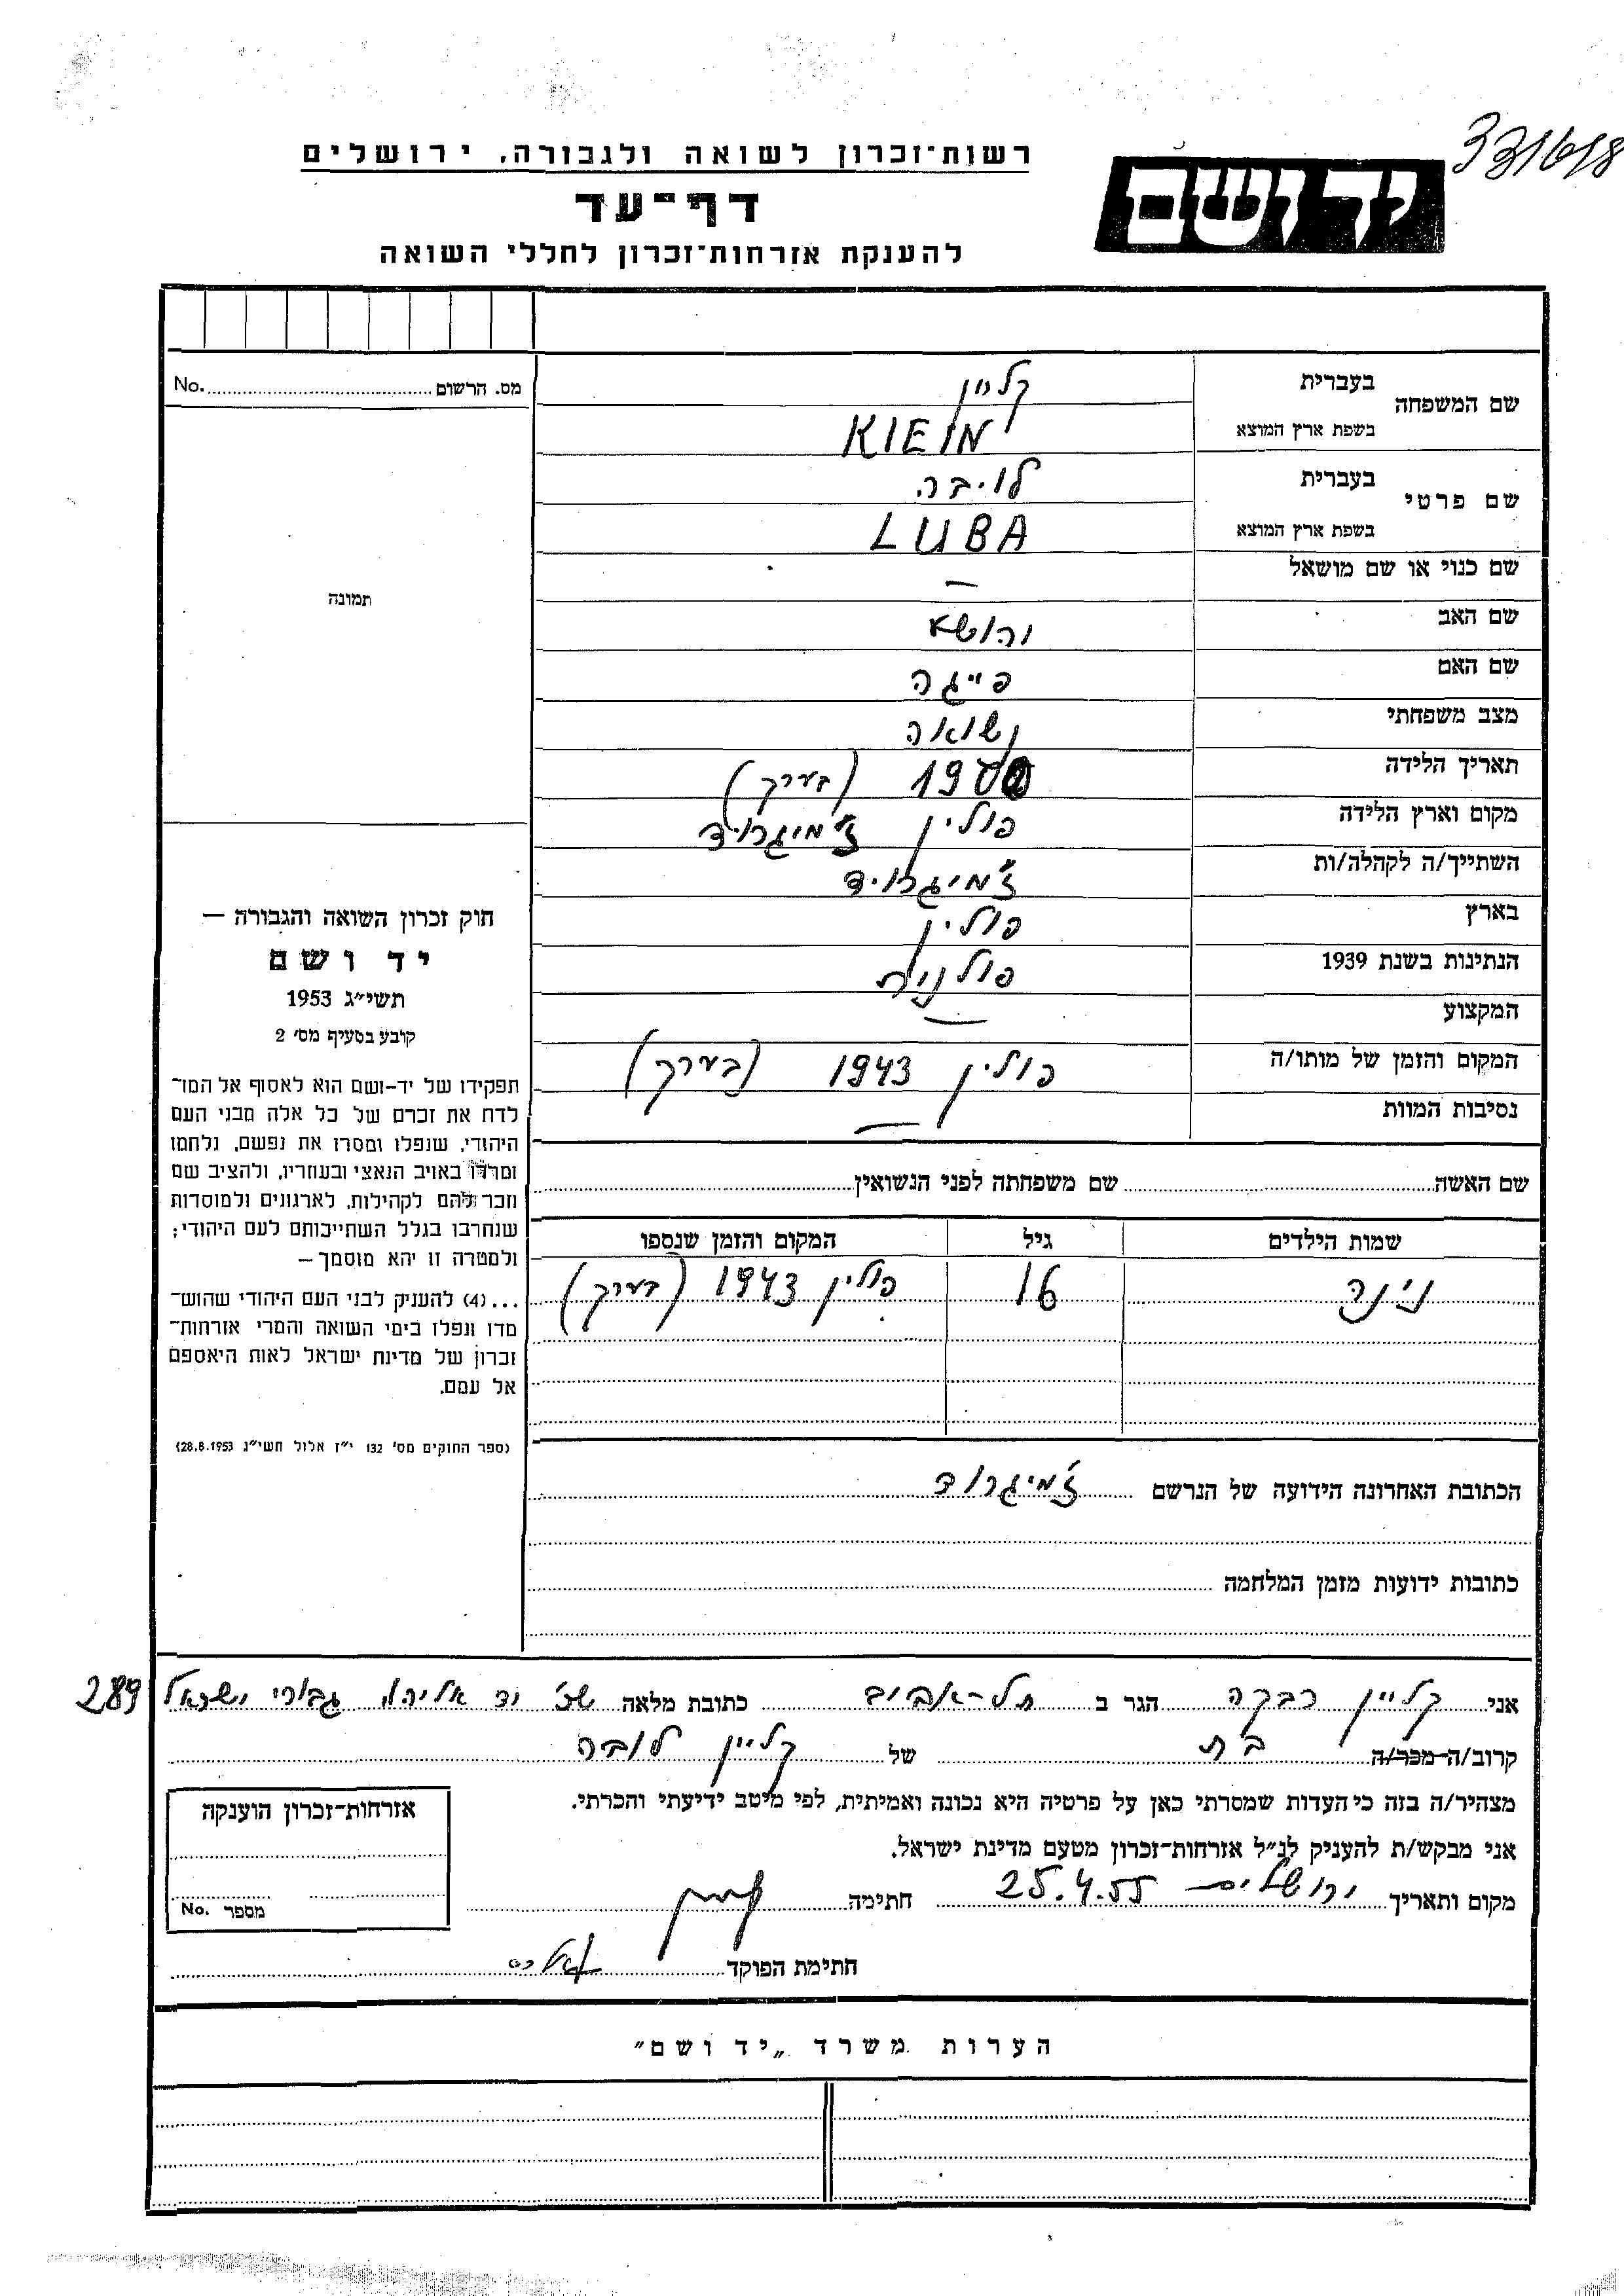 331618
רשות־זכרון לשואה ולגבורה, ירושלים
יד ושם
דף־עד
להענקת אזרחות־זכרון לחללי השואה
שם המשפחה בעברית קליין
בשפת ארץ המוצא KIEIN
שם פרטי בעברית לויבה
בשפת ארץ המוצא LUBA
שם כנוי או שם מושאל —
שם האב יהושע
שם האם פייגה
מצב משפחתי נשואה
תאריך הלידה 1900 (בערך)
מקום וארץ הלידה פולין ז'מיגרוד
השתייך/ה לקהלה/ות ז'מיגרוד
בארץ פולין
הנתינות בשנת 1939 פולנית
המקצוע —
המקום והזמן של מותו/ה פולין 1943 (בערך)
נסיבות המוות —
שם האשה שם משפחתה לפני הנשואין
שמות הילדים גיל המקום והזמן שנספו
נ'נה 16 פולין 1943 (בערך)
הכתובת האחרונה הידועה של הנרשם ז'מיגרוד
כתובות ידועות מזמן המלחמה
מס. הרשום No.
תמונה
חוק זכרון השואה והגבורה —
יד ושם
תשי״ג 1953
קובע בסעיף מס׳ 2
תפקידו של יד-ושם הוא לאסוף אל המו־
לדת את זכרם של כל אלה מבני העם
היהודי, שנפלו ומסרו את נפשם, נלחמו
ומרדו באויב הנאצי ובעוזריו, ולהציב שם
וזכר להם לקהילות, לארגונים ולמוסדות
שנחרבו בגלל השתייכותם לעם היהודי;
ולמטרה זו יהא מוסמך —
...(4) להעניק לבני העם היהודי שהוש־
מדו ונפלו בימי השואה והמרי אזרחות־
זכרון של מדינת ישראל לאות היאספם
אל עמם.
(ספר החוקים מס׳ 132 י״ז אלול תשי״ג 28.8.1953)
אני קליין רבקה הגר ב תל-אביב כתובת מלאה שכ' יד אליהו, גבורי ישראל 289
קרוב/ה מכר/ה בת של קליין לובה
מצהיר/ה בזה כי העדות שמסרתי כאן על פרטיה היא נכונה ואמיתית, לפי מיטב ידיעתי והכרתי.
אני מבקש/ת להעניק לנ״ל אזרחות־זכרון מטעם מדינת ישראל.
מקום ותאריך ירושלים 25.4.55 חתימה
חתימת הפוקד
אזרחות־זכרון הוענקה
מספר No.
הערות משרד „יד ושם״